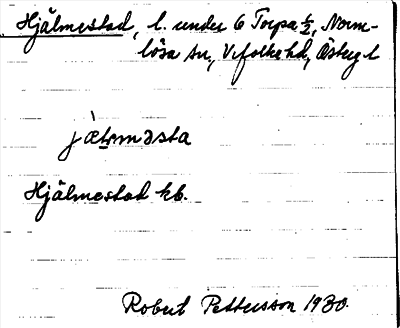 Hjälmestad, l. under 6 Torpa 1/2, Norm-
lösa sn, Vifolka hd, Östergl
Hjälmestad kb.
Robert Pettersson 1930.